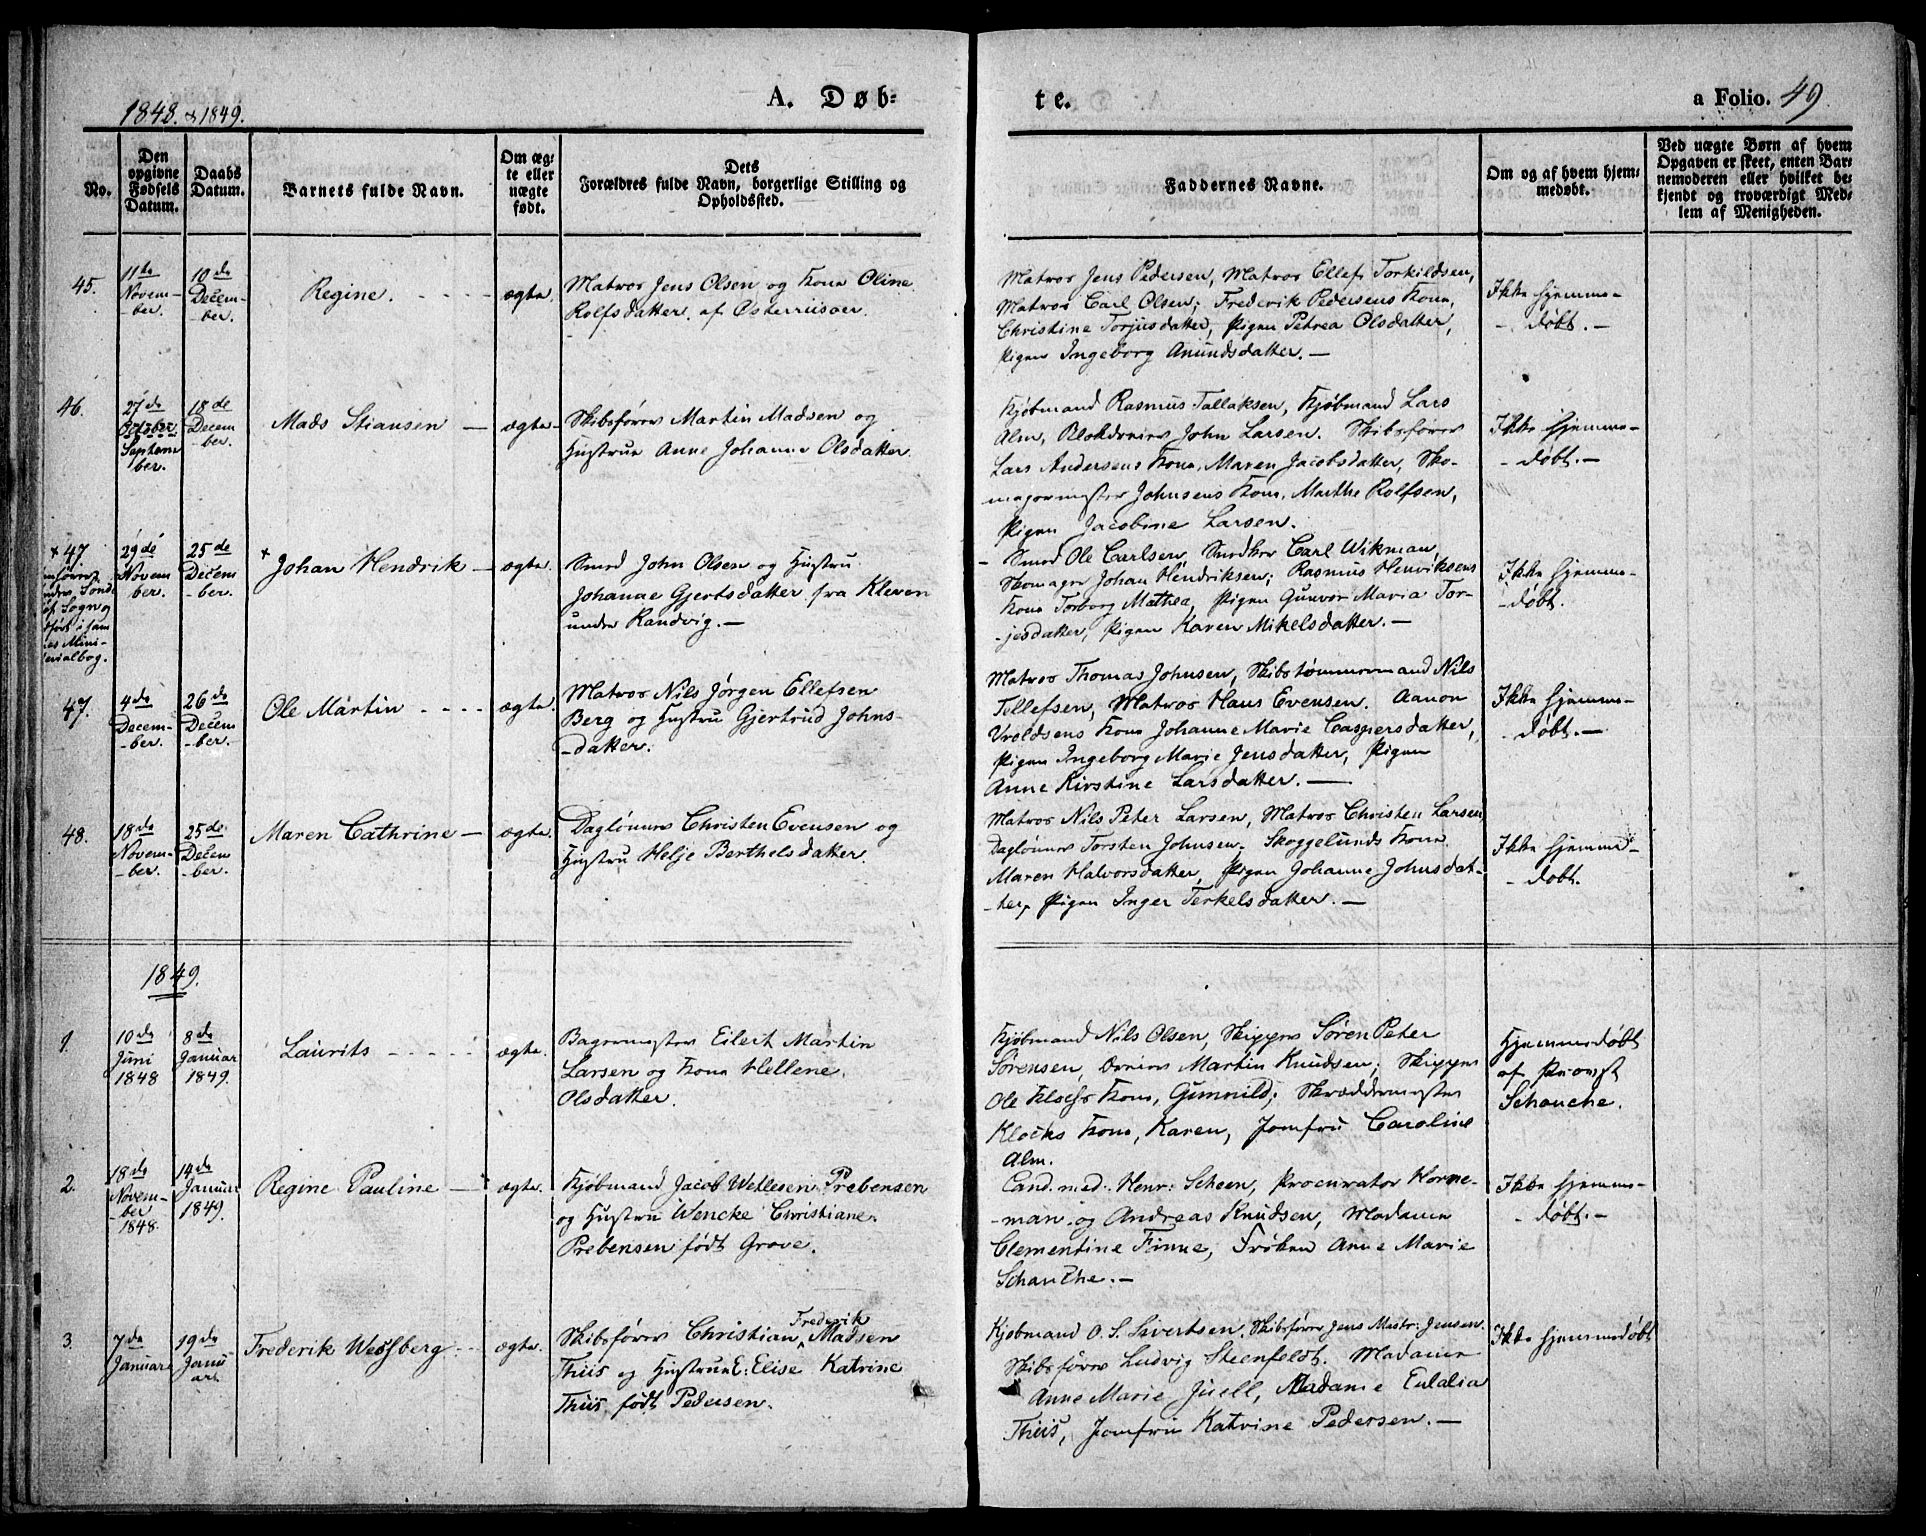 1848. & 1849.
A. Døb-
te.
a Folio. 49
No.
Den opgivne Fødsels Datum.
Daabs Datum.
Barnets fulde Navn.
Om ægte eller uægte født.
Dets
Forældres fulde Navn, borgerlige Stilling og
Opholdssted.
Faddernes Navne.
Om og af hvem hjem-
medøbt.
Ved uægte Børn af hvem
Opgaven er skeet, enten Bar-
nemoderen eller hvilket be-
kjendt og troværdigt Med-
lem af Menigheden.
45.
11te
Novem-
-ber.
10de
Decem-
ber.
Regine.
ægte.
Matros Jens Olsen og Kone Oline
Rolfsdatter. af Østerriisøer.
Matros Jens Pedersen, Matros Ellef Torkildsen,
Matros Carl Olsen; Frederik Pedersens Kone,
Christine Torjusdatter, Pigen Petrea Olsdatter,
Pigen Ingeborg Anundsdatter. —
Ikke hjemme-
- døbt. -
46.
27de
October
Septem
ber.
18de
Decem
ber.
Mads Stiansen —
ægte-
Skibsfører Martin Madsen og
Hustrue Anne Johanne Olsdatter.
Kjøbmand Rasmus Tallaksen, Kjøbmand Lars
Alm, Blokdreier John Larsen. Skibsfører
Lars Andersens Kone, Maren Jacobsdatter, Sko-
magermester Johnsens Kone, Marthe Rolfsen,
Pigen Jacobine Larsen.
Ikke hjemme-
- døbt. -
x 47
Sogn og
29de
Novem
ber.
25de
Decem
-ber.
x Johan Hendrik —
ægte.
Smed John Olsen og Hustru
Johanne Gjertsdatter fra Kleven
under Randvig. —
- Smed Ole Carlsen, Snedker Carl Wikman,
Skomager Johan Hendriksen; Rasmus Henriksens
Kone Torborg Mathea, Pigen Gunvor Maria Tor-
-jesdatter, Pigen Karen Mikelsdatter. —
Ikke hjemme-
-døbt.
47.
4de
Decem-
-ber.
26de
Decem
-ber.
Ole Martin
ægte.
Matros Nils Jørgen Ellefsen
Berg og Hustru Gjertrud Johns-
-datter.
Matros Thomas Johnsen, Skibstømmermand Nils
Tellefsen, Matros Hans Evensen. Aanon
Vroldsens Kone Johanne Marie Caspersdatter,
Pigen Ingeborg Marie Jensdatter, Pigen
Anne Kirstine Larsdatter. —
Ikke hjemme-
- døbt. —
48.
18de
Novem-
-ber.
25de
Decem
-ber.
Maren Cathrine —
ægte.
Daglønner Christen Evensen og
Hustru Helje Berthelsdatter.
Matros Nils Peter Larsen, Matros Christen Larsen
Daglønner Torsten Johnsen. Skoggelunds Kone
Maren Halvorsdatter, Pigen Johanne Johnsdat-
-ter, Pigen Inger Terkelsdatter. —
Ikke hjemme-
- døbt.
1849.
1.
10de
Juni
1848
8de
Januar
1849.
Laurits
ægte.
Bagermester Eilert Martin
Larsen og Kone Hellene
Olsdatter.
Kjøbmand Nils Olsen, Skipper Søren Peter
Sørensen, Martin Knudsen; Skipper
Ole Klochs Kone, Gunnild; Skræddermester
Klocks Kone, Karen, Jomfru Caroline
Alm.
Hjemmedøbt
af Provst
Schanche.
2.
18de
Novem-
-ber
1848.
14de
Januar
1849.
Regine Pauline —
ægte.
Kjøbmand Jacob Wetlesen Prebensen
og Hustru Wencke Christiane
Prebensen født Grove.
Cand. med: Henr: Scheen, Procurator Horne-
-man og Andreas Knudsen, Madame
Clementine Finne, Frøken Anne Marie
Schanche. —
Ikke hjemme-
- døbt. -
3.
7de
Januar
19de
Janu-
ar
Frederik Wessberg
ægte.
Skibsfører Christian Frederik Madsen
Thiis og Hustrue E. Elise Katrine
Thiis, født Pedersen.
Kjøbmand O. S. Sivertsen. Skibsfører Jens Mart: Jensen.
Skibsfører Ludvig Steenfeldt. Madame
Anne Marie Juell, Madame Eulalia
Thiis, Jomfru Katrine Pedersen. —
Ikke hjemmedøbt